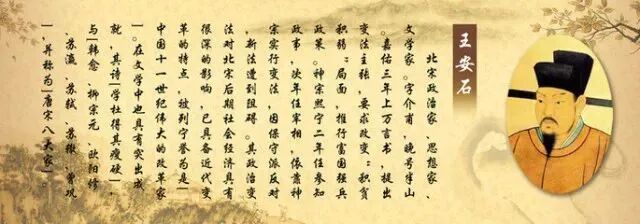 王安石
北宋政治家、思想家、
文学家。字介甫，晚号半山
。嘉佑三年上万言书，提出
变法主张，要求改变“积贫
积弱”局面，推行富国强兵
政策。神宗熙宁二年任参知
政事，次年任宰相，依靠神
宗实行变法，因保守派反对
，新法遭到阻碍。其政治变
法对北宋后期社会经济具有
很深的影响，已具备近代变
革的特点，被列宁誉为是“
中国十一世纪伟大的改革家
”。在文学中也具有突出成
就，其诗“学杜得其瘦硬”
与韩愈、柳宗元、欧阳修
、苏瀛、苏轼、苏辙、曾巩
，并称为“唐宋八大家”。